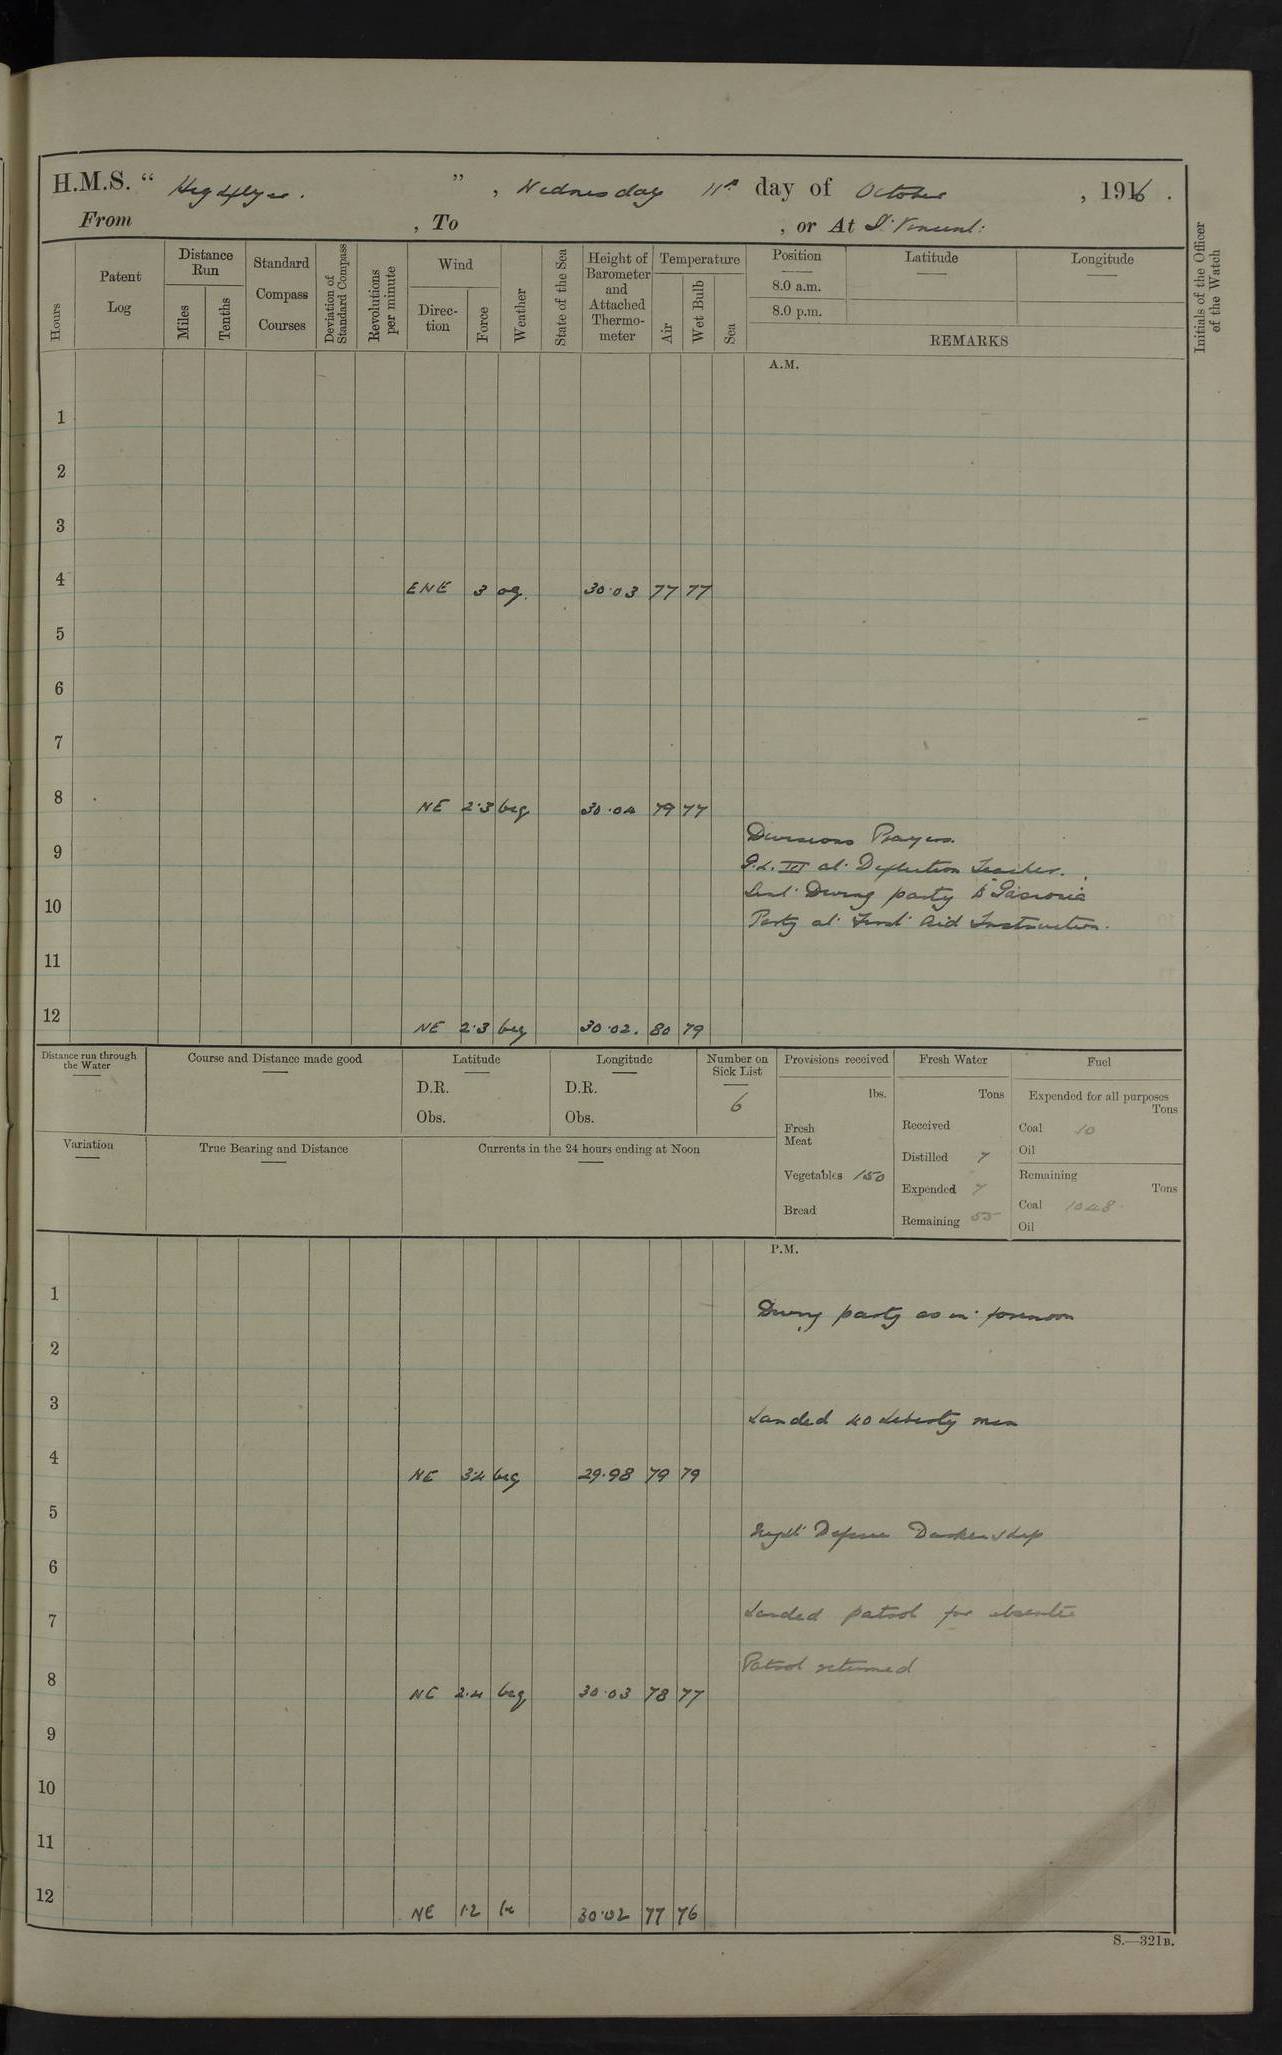 H.M.S. “ Highflyer. ” , Wednesday 11th day of October , 1916 .
From , To , or At St. Vincent.
Hours
Patent Log
Distance Run
Miles
Tenths
Standard Compass Courses
Deviation of Standard Compass
Revolutions per minute
Wind
Direction
Force
Weather
State of the Sea
Height of Barometer and Attached Thermometer
Temperature
Air
Wet Bulb
Sea
Position
8.0 a.m.
8.0 p.m.
Latitude
Longitude
REMARKS
Initials of the Officer of the Watch
A.M.
1
2
3
4 ENE 3 og 30.03 77 77
5
6
7
8 NE 2.3 bcg 30.04 79 77
Divisions Prayers.
9
G.L. III at Deflection Teacher.
Sent Diving party to
10
Party at First Aid Instruction.
11
12 NE 2.3 bcg 30.02. 80 79
Distance run through the Water
Course and Distance made good
Latitude
D.R.
Obs.
Longitude
D.R.
Obs.
Number on Sick List
6
Provisions received
lbs.
Fresh Meat
Vegetables 150
Bread
Fresh Water
Tons
Received
Distilled 7
Expended 7
Remaining 55
Fuel
Expended for all purposes
Tons
Coal 10
Oil
Remaining
Tons
Coal 1048
Oil
Variation
True Bearing and Distance
Currents in the 24 hours ending at Noon
P.M.
1
Diving party as in forenoon
2
3
Landed 40 Liberty men
4 NE 3.4 bcg 29.98 79 79
5
Night Defence Darken ship
6
7 Landed patrol for absentee
Patrol returned
8 NE 2.4 bcg 30.03 78 77
9
10
11
12 NE 1.2 bc 30.02 77 76
S.—321B.